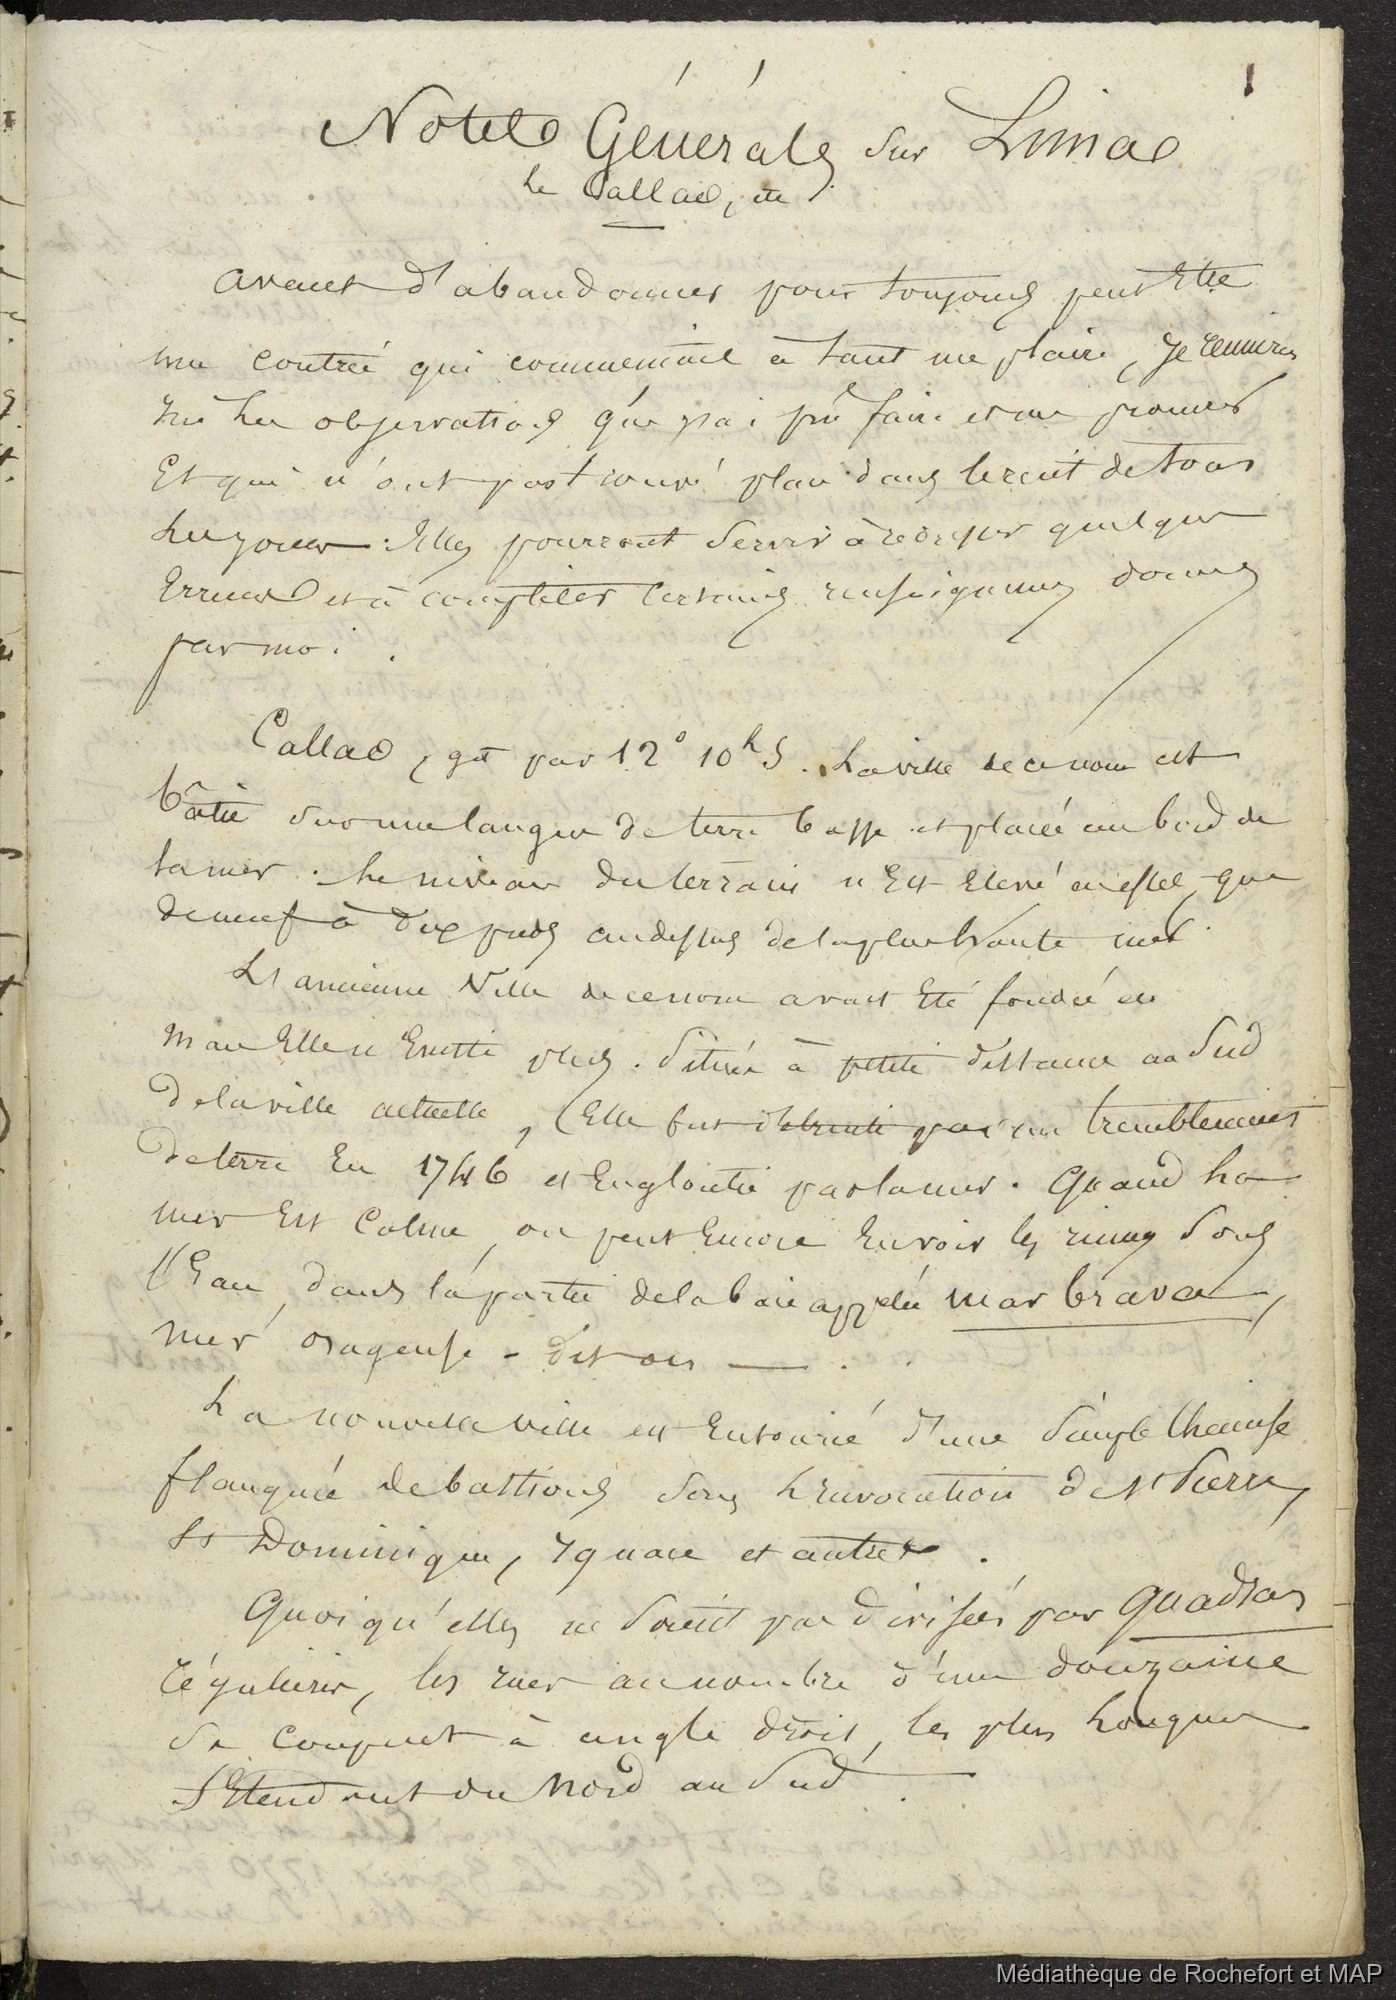 1
Notes Générales sur Lima
le Callao, etc
avant d'abandonner pour toujours peut Etre
une contrée qui commençait à tant me plaire, Je réunirai
ici les observations que j'ai pû faire et me procurer
Et qui n'ont pas trouvé place dans le récit de tous
les jours. Elles pourront servir à redresser quelques
Erreurs et à complèter certains renseignemens donnés
par moi.
Callao, gît par 12° 10h S. La ville de ce nom est
bâtie sur une langue de terre basse et placée au bord de
la mer. Le niveau du terrain n'Est Elevé en effet, que
de neuf à dix pieds au dessus de la plus haute mer.
L'ancienne Ville de ce nom avait Eté fondée en
mais Elle n'Existe plus. Située à petite distance au Sud
de la ville actuelle, Elle fut détruite par un tremblement
de terre En 1746 et Engloutie par la mer. Quand la
mer Est Calme, on peut Encore En voir les ruines sous
l'Eau, dans la partie de la baie appelée mar brava,
mer orageuse - dit on — .
La nouvelle ville est Entourée d'une simple Chemise
flanquée de bastions sous l'invocation de St Pierre,
St Dominique, Ignace et autres.
Quoiqu'elles ne soient pas divisées par Quadras
régulières, les rues au nombre d'une douzaine
se coupent à angle droit, les plus longues
s'Etendent du Nord au Sud.
Médiathèque de Rochefort et MAP